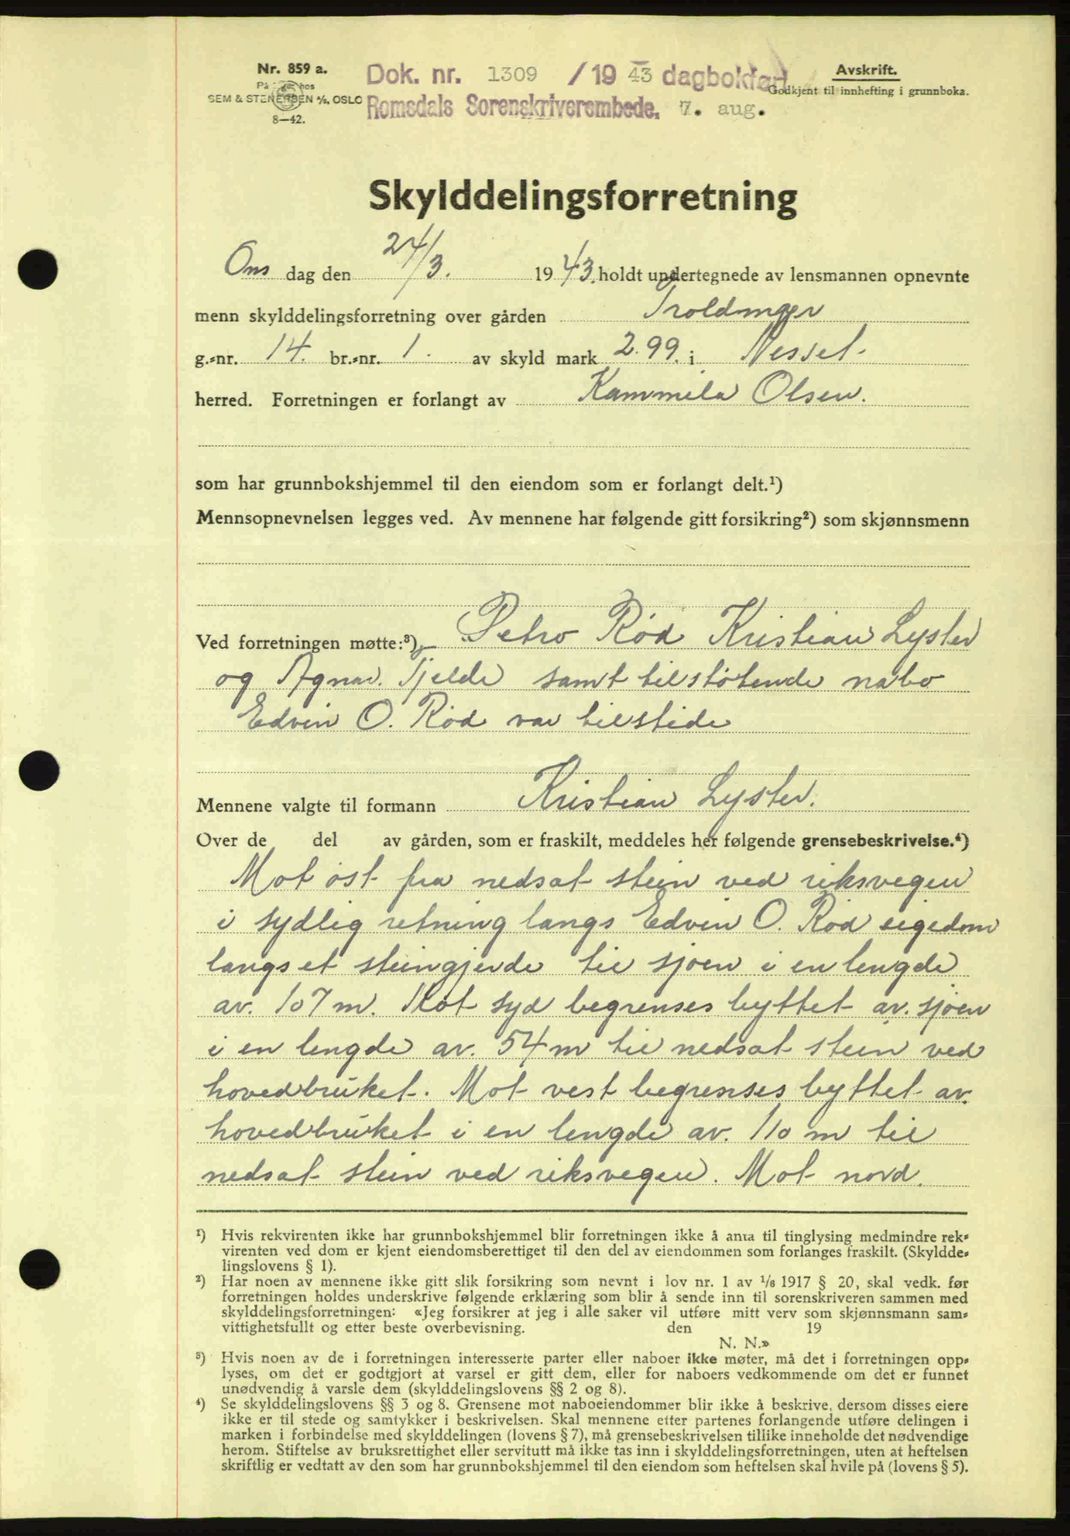 Nr. 859 a.
På hos
SEM & STENERSEN A/s, OSLO
8—42.
Dok. nr. 1309 /19 43 dagbokført
Romsdals Sorenskriverembede. 7. aug.
Avskrift.
Godkjent til innhefting i grunnboka.
Skylddelingsforretning
Ons dag den 24/3. 1943. holdt undertegnede av lensmannen opnevnte
menn skylddelingsforretning over gården
g.-nr. 14. br.-nr. 1. av skyld mark 2.99. i Nesset
herred. Forretningen er forlangt av Kammila Olsen.
som har grunnbokshjemmel til den eiendom som er forlangt delt.¹)
Mennsopnevnelsen legges ved. Av mennene har følgende gitt forsikring²) som skjønnsmenn
Ved forretningen møtte:³) Petro Rød Kristian Lyster
og Agnar Tjelde samt tilstøtende nabo
Edvin O. Rød var tilstede
Mennene valgte til formann Kristian Lyster.
Over de del av gården, som er fraskilt, meddeles her følgende grensebeskrivelse.⁴)
Mot øst fra nedsat stein ved riksvegen
i sydlig retning langs Edvin O. Rød eigedom
langs et steingjerde til sjøen i en lengde
av. 107 m. Mot syd begrenses byttet av. sjøen
i en lengde av. 54 m til nedsat stein ved
hovedbruket. Mot vest begrenses byttet av.
hovedbruket i en lengde av. 110 m til
nedsat stein ved riksvegen. Mot nord.
¹) Hvis rekvirenten ikke har grunnbokshjemmel blir forretningen ikke å anta til tinglysing medmindre rek-
virenten ved dom er kjent eiendomsberettiget til den del av eiendommen som forlanges fraskilt. (Skyldde-
lingslovens § 1).
²) Har noen av mennene ikke gitt slik forsikring som nevnt i lov nr. 1 av 1/6 1917 § 20, skal vedk. før
forretningen holdes underskrive følgende erklæring som blir å sende inn til sorenskriveren sammen med
skylddelingsforretningen: «Jeg forsikrer at jeg i alle saker vil utføre mitt verv som skjønnsmann sam-
vittighetsfullt og etter beste overbevisning. den 19
N. N.»
³) Hvis noen av de i forretningen interesserte parter eller naboer ikke møter, må det i forretningen opp-
lyses, om det er godtgjort at varsel er gitt dem, eller for naboers vedkommende om det er funnet
unødvendig å varsle dem (skylddelingslovens §§ 2 og 8).
⁴) Se skylddelingslovens §§ 3 og 8. Grensene mot naboeiendommer blir ikke å beskrive, dersom disses eiere
ikke er til stede og samtykker i beskrivelsen. Skal mennene etter partenes forlangende utføre delingen i
marken i forbindelse med skylddelingen (lovens § 7), må grensebeskrivelsen tillike inneholde det nødvendige
herom. Stiftelse av bruksrettighet eller servitutt må ikke tas inn i skylddelingsforretningen, uten at heftelsen
skriftlig er vedtatt av den som har grunnbokshjemmel til den eiendom som heftelsen skal hvile på (lovens § 5).